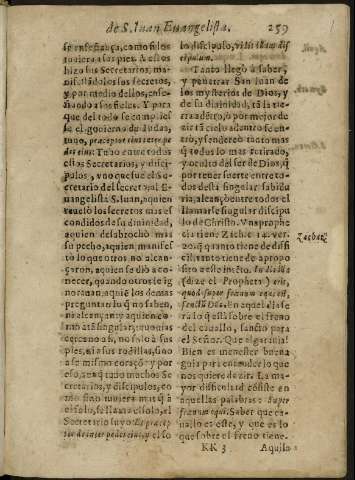 de S. Iuan Euangelista. 259
se enseñança, como si los
tuuiera a sus pies. A ellos
hizo sus Secretarios, ma-
y por medio dellos, ense-
ñando a los fieles. Y para
que del todo se cumpliesse
se el gouierno de Iudas,
tuyo, præceptor eius inter pe-
des eius: Tuuo entre todos
estos Secretarios, y disci-
pulos, vno que fue el Se-
cretario del secreto, al E-
uangelista S. Iuan, a quien
reueló los secretos mas es
condidos de su diuinidad,
a quien desabrochò mas
su pecho, a quien manifes
tò lo que otros no alcan-
çaron, a quien se diò a co-
nocer, quando otros le ig
norauan, a quien los demas
preguntan lo q̃ no saben,
ni alcançan: y a quien co-
mo a tã singular; tuuo mas
cerca no a si, no solo a sus
pies, ni a sus rodillas, sino
a su mismo coraçõ: y por
esso, aunq̃ tuuo muchos Se
cretarios, y discipulos, co
mo sino tuuiera mas q̃ a
este solo, le llama el solo, el
Secretario suyo: Et præcep
tor de inter pedes eius, y el so
lo discipulo, vidit illum dis
cipulum.
Tanto llegò a saber,
y penetrar San Iuan de
los mysterios de Dios, y
de su diuinidad, tã la tie-
rra adẽtro, ò por mejor de
zir tã cielo adentro se en-
trò, y se nderezò tanto mas
q̃ todos lo mas retirado,
y oculto del ser de Dios, q̃
por tener suerte entre to-
dos desta singular sabidu
ria, alcançò entre todos el
llamarse singular discipu
lo de Christo. Vna prophe
cia tiene Zach. c. 14. ver.
20. q̃ quanto tiene de difi
cil, tanto tiene de apropo
sito a este incto. In die illa
(dize el Propheta) erit,
quod super frænum equi est,
sanctũ Dño. En aquel dia se
ra lo q̃ està sobre el freno
del cauallo, sancto para
el Señor. Que algarauia!
Bien es menester buena
guia para entender lo que
nos quiere dezir. La ma-
yor dificultad cõsiste en
aquellas palabras: Super
frænum equi. Saber que ca-
uallo es este, y que es lo
que sobre el freno tiene.
Zachar.
KK 3 Aquilo